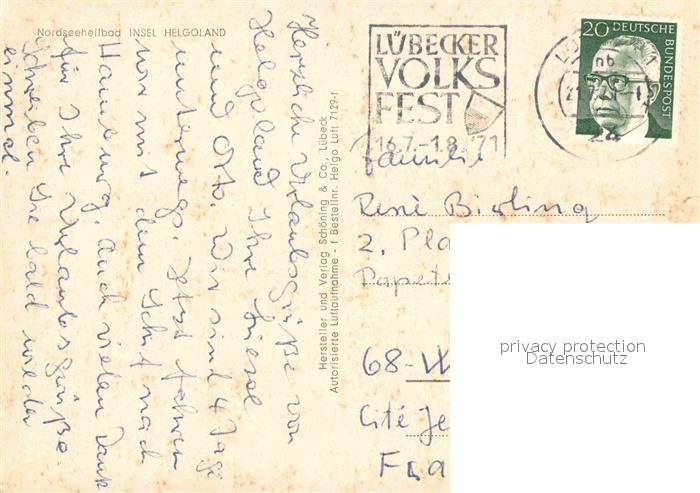 Nordseeheilbad INSEL HELGOLAND
Herzliche Urlaubsgrüße von
Helgoland Ihre Giesel
und Otto. Wir sind 4 Tage
unterwegs. Jetzt fahren
wir mit dem Schif nach
Hamburg. Auch vielen Dank
für Ihre Urlaubsgrüße.
Schreiben Sie bald wieder
einmal.
Hersteller und Verlag Schöning & Co., Lübeck
Autorisierte Luftaufnahme - f Bestellnr. Helgo Luft 7129-f
LÜBECKER
VOLKS
FEST
16.7.-1.8.71
20 DEUTSCHE
BUNDESPOST
24
Familie
René Birling
2. Pla
Papete
68-W
Cité Je
Fra
privacy protection
Datenschutz